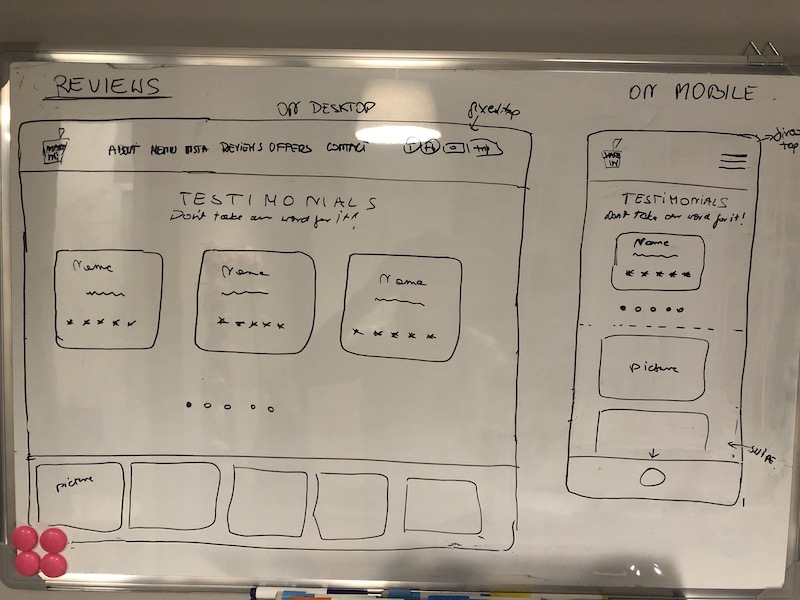 REVIEWS
ON DESKTOP
fixed top
ON MOBILE
ABOUT MENU INSTA REVIEWS OFFERS CONTACT
TESTIMONIALS
Don't take our word for it!
Name
* * * * *
Name
* * * * *
Name
* * * * *
picture
top
TESTIMONIALS
Don't take our word for it!
Name
* * * * *
picture
SWIPE